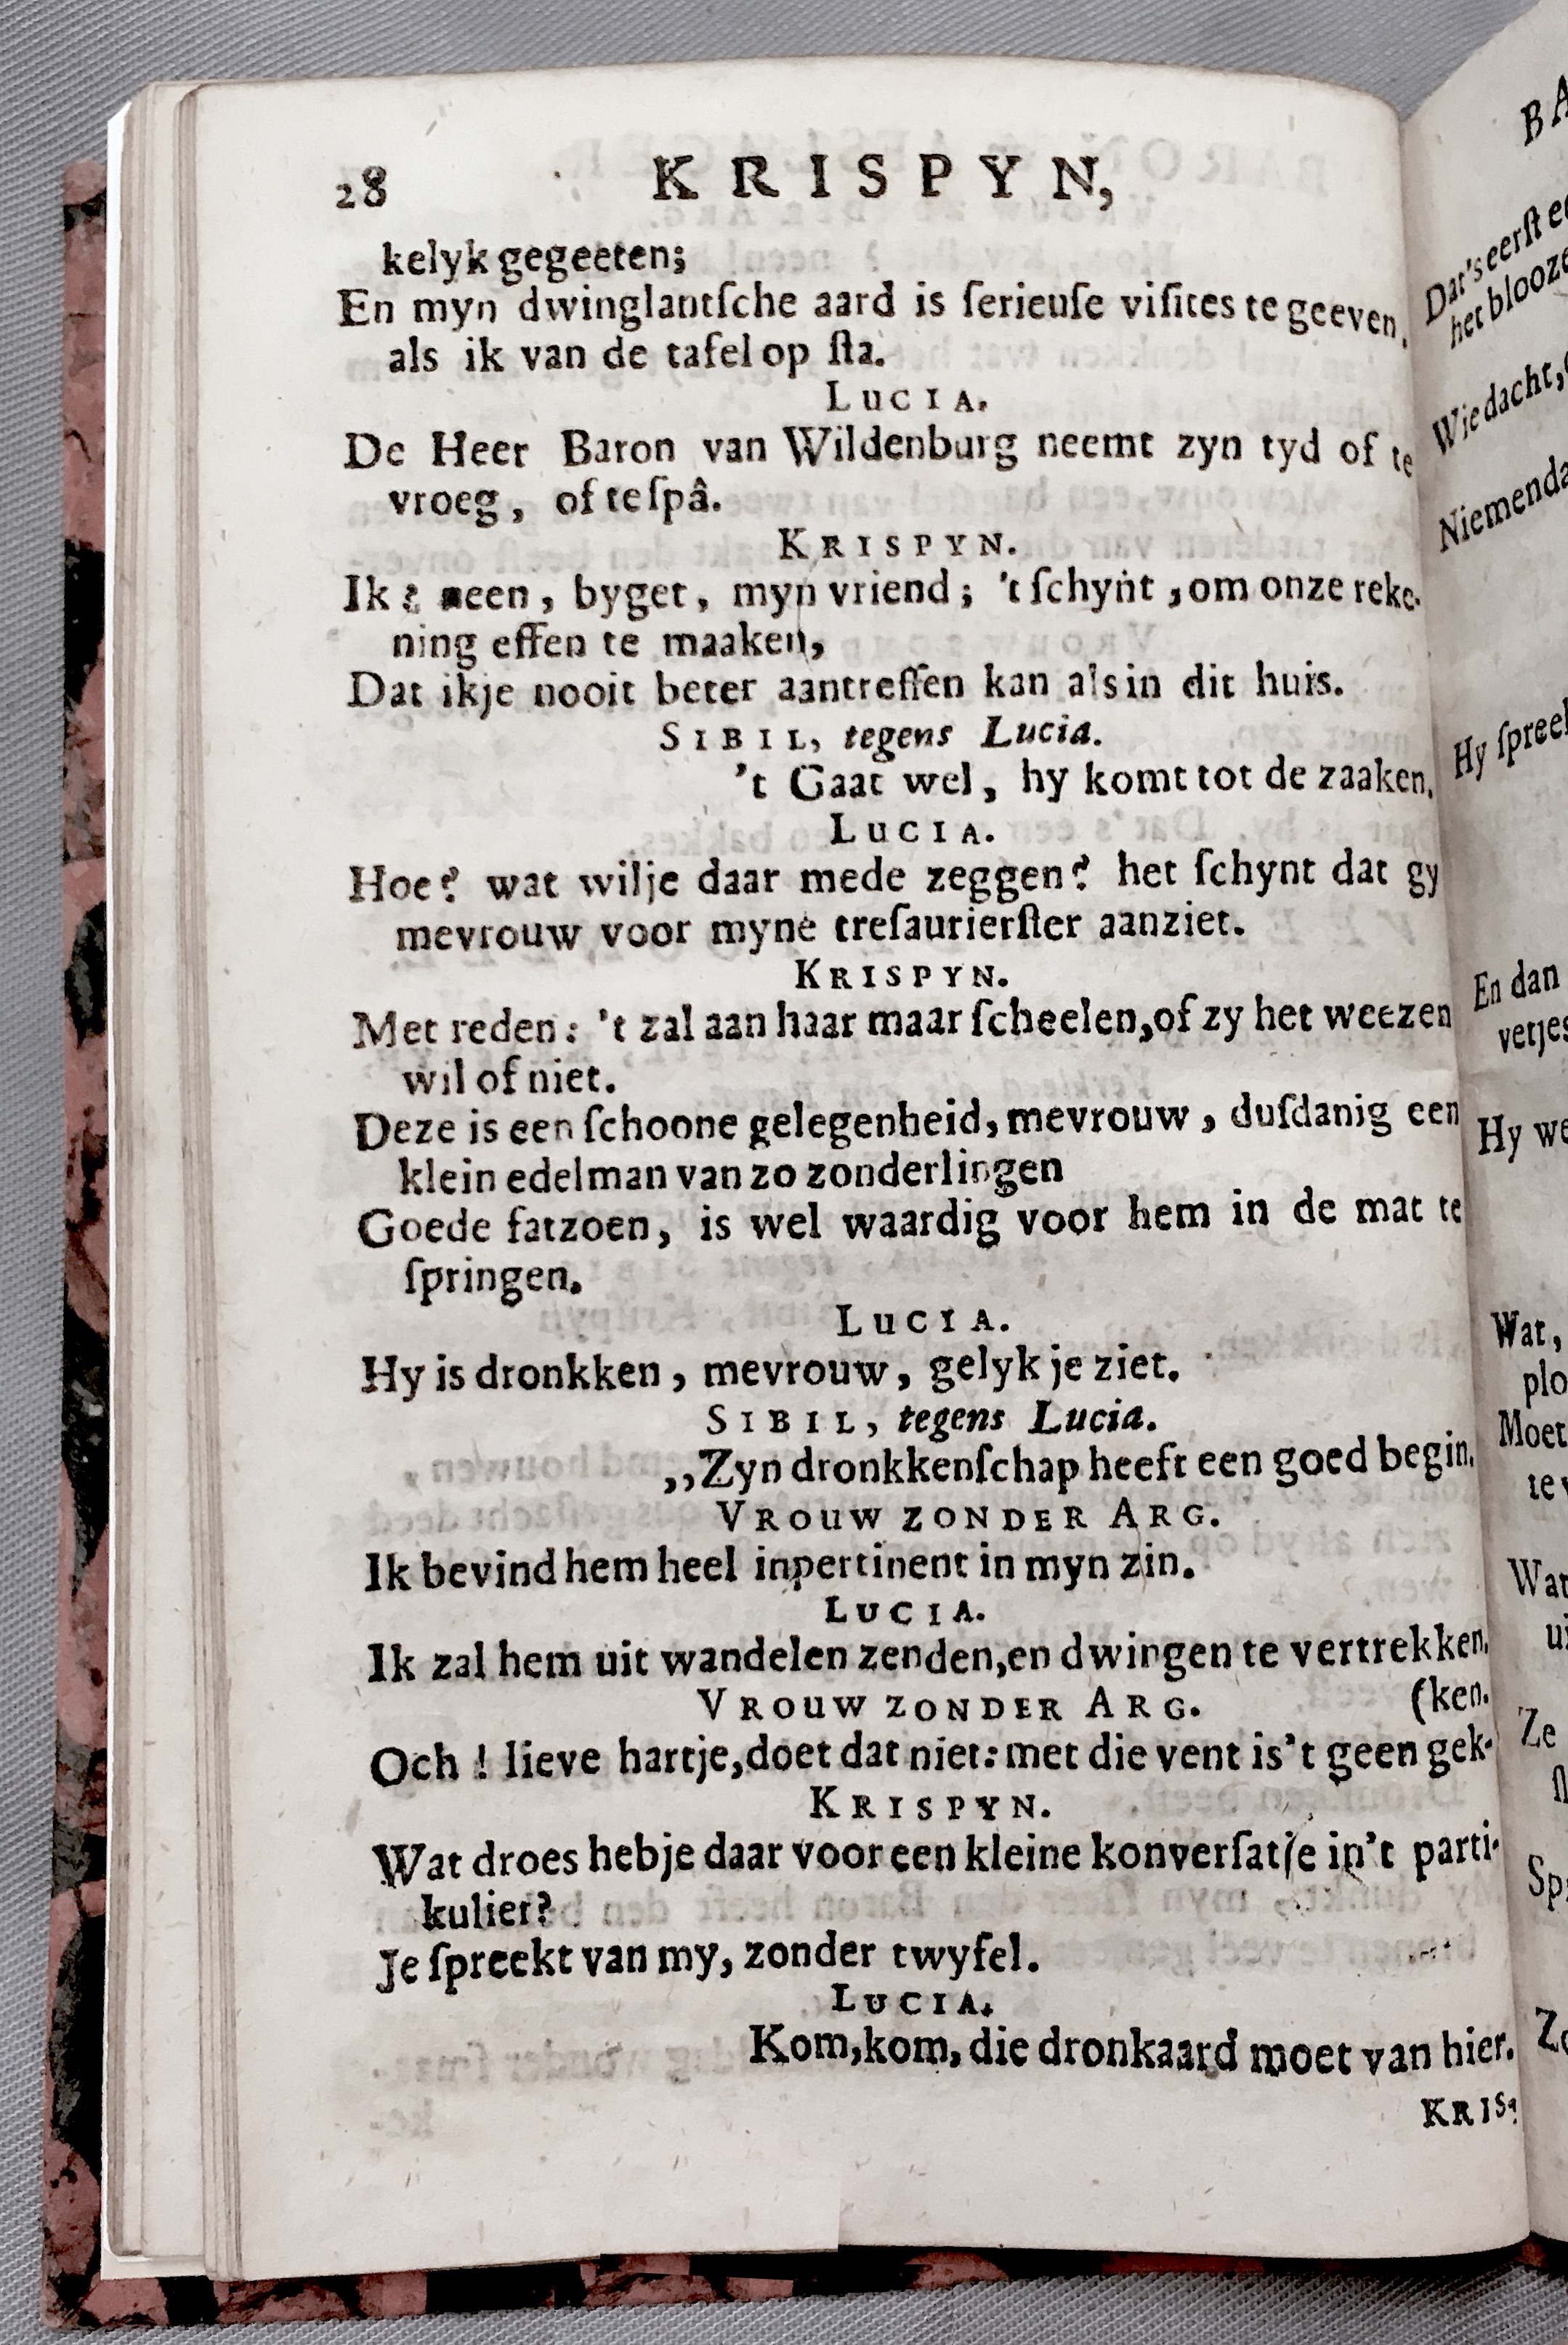 28 KRISPYN,
kelyk gegeeten;
En myn dwinglantſche aard is ſerieuſe viſites te geeven,
als ik van de tafel op ſta.
LUCIA.
De Heer Baron van Wildenburg neemt zyn tyd of te
vroeg, of te ſpâ.
KRISPYN.
Ik neen, byget, myn vriend; 't ſchynt, om onze reke-
ning effen te maaken,
Dat ikje nooit beter aantreffen kan als in dit huis.
SIBIL, tegens Lucia.
't Gaat wel, hy komt tot de zaaken.
LUCIA.
Hoe? wat wilje daar mede zeggen? het ſchynt dat gy
mevrouw voor myne treſaurierſter aanziet.
KRISPYN.
Met reden: 't zal aan haar maar ſcheelen, of zy het weezen
wil of niet.
Deze is een ſchoone gelegenheid, mevrouw, duſdanig een
klein edelman van zo zonderlingen
Goede fatzoen, is wel waardig voor hem in de mat te
ſpringen.
LUCIA.
Hy is dronkken, mevrouw, gelyk je ziet.
SIBIL, tegens Lucia.
,,Zyn dronkkenſchap heeft een goed begin.
VROUW ZONDER ARG.
Ik bevind hem heel inpertinent in myn zin.
LUCIA.
Ik zal hem uit wandelen zenden, en dwingen te vertrekken.
VROUW ZONDER ARG. (ken.
Och! lieve hartje, doet dat niet: met die vent is't geen gek-
KRISPYN.
Wat droes hebje daar voor een kleine konverſatie in't parti-
kulier?
Je ſpreekt van my, zonder twyfel.
LUCIA.
Kom, kom, die dronkaard moet van hier.
KRIS-
BA
Dat's eerſt
het blooze
Wie dacht,
Niemend
Hy ſpree
En dan
vetjes
Hy we
Wat,
plo
Moet
te
Wat
Ze